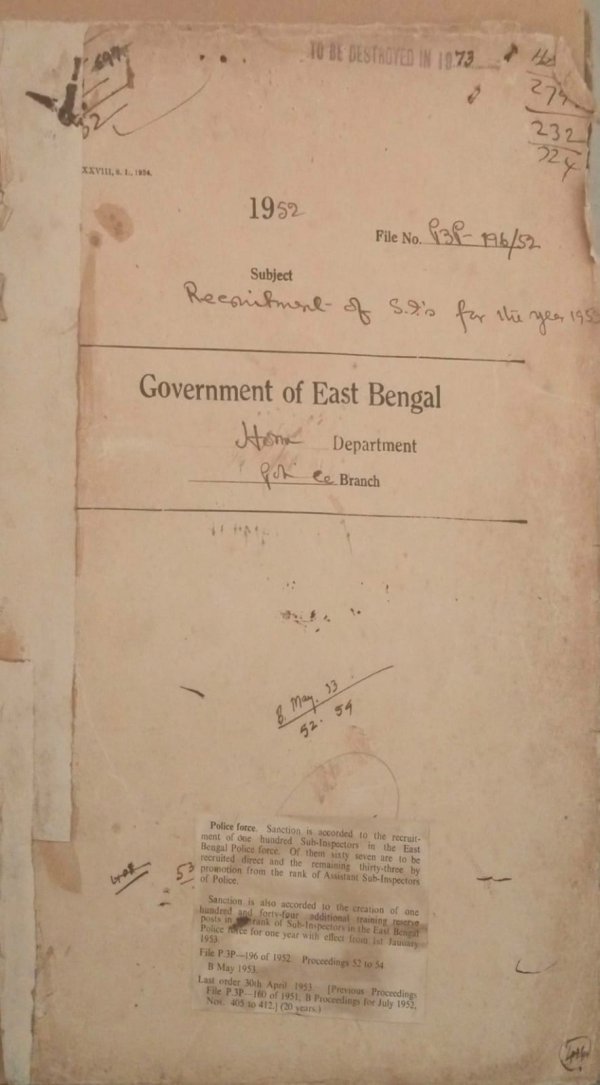 TO BE DESTROYED IN 1973
274
232
224
52
XXVIII, S. I., 1934.
1952
File No. P3P-196/52
Subject
Recruitment of S.I's for the year 1953
Government of East Bengal
Home Department
Police Branch
B May. 53
52. 54
Police force. Sanction is accorded to the recruit-
ment of one hundred Sub-Inspectors in the East
Bengal Police force. Of them sixty seven are to be
recruited direct and the remaining thirty-three by
promotion from the rank of Assistant Sub-Inspectors
of Police.
53
Sanction is also accorded to the creation of one
hundred and forty-four additional training reserve
posts in rank of Sub-Inspectors in the East Bengal
Police force for one year with effect from 1st January
1953.
File P.3P—196 of 1952. Proceedings 52 to 54
B May 1953.
Last order 30th April 1953. [Previous Proceedings
File P.3P—160 of 1951, B Proceedings for July 1952,
Nos. 405 to 412.] (20 years.)